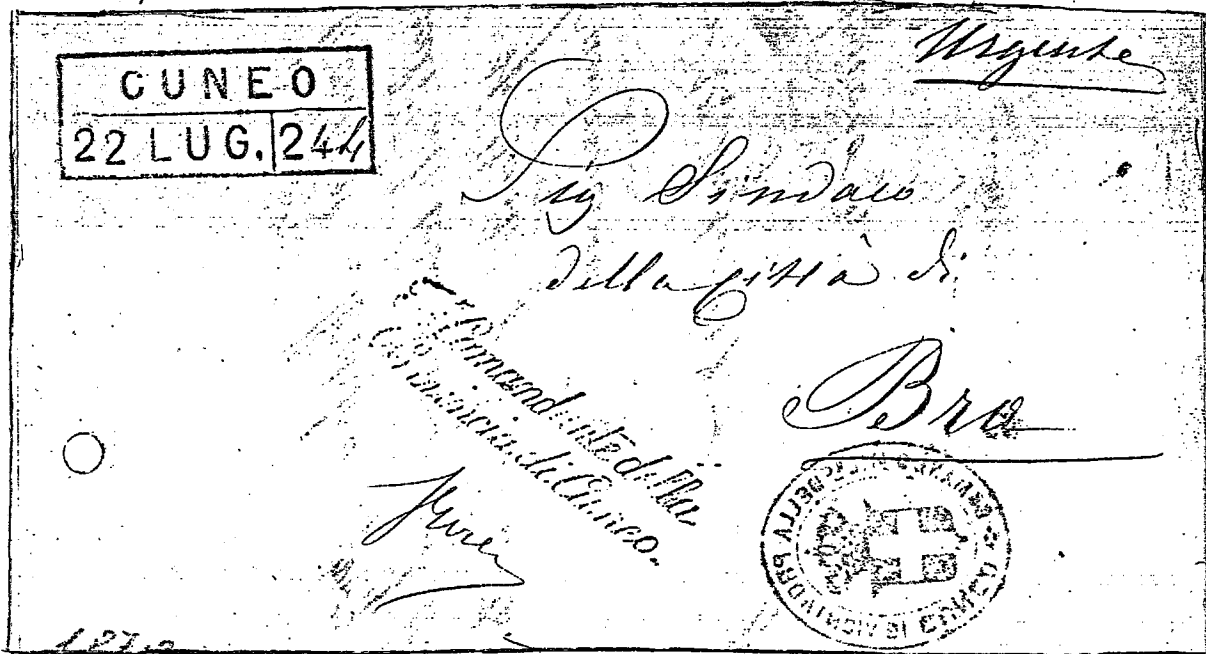 Urgente
CUNEO
22 LUG. 244
Sig Sindaco
della città di
Bra
Il Comandante della
Provincia di Cuneo.
COMANDO DELLA PROVINCIA DI CUNEO